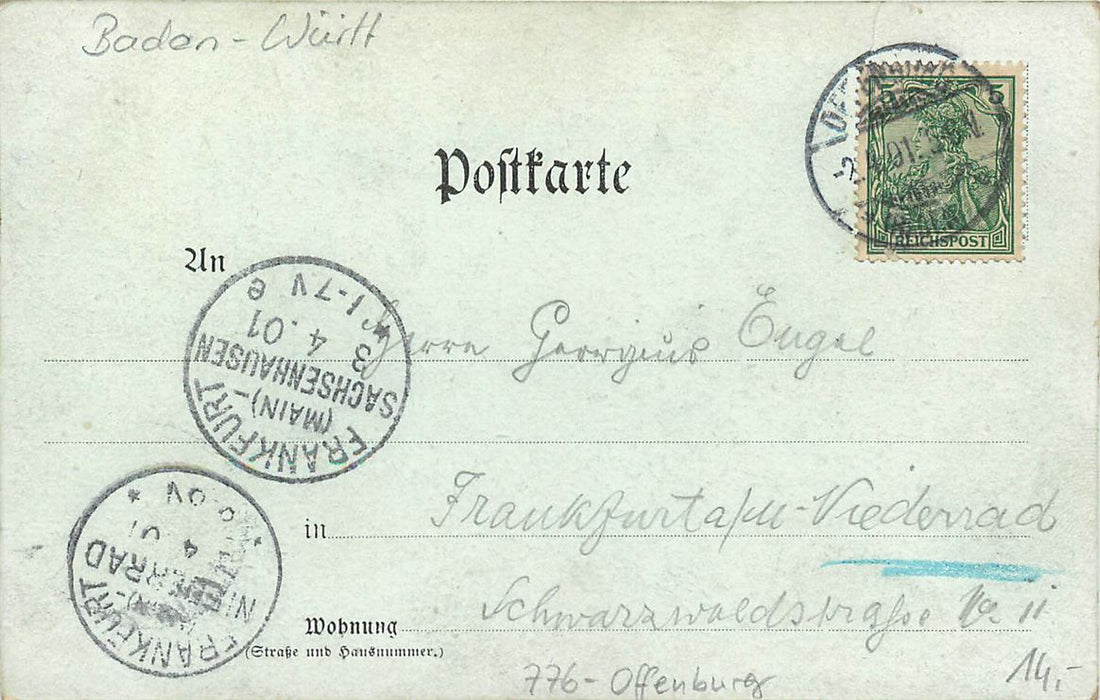 Baden-Württ
OFFENBURG
5
5
REICHSPOST
Postkarte
An
FRANKFURT
(MAIN)-
SACHSENHAUSEN
3
4.01
1-7V e
Herrn Georgius Engel
in Frankfurt a/M-Niederrad
Schwarzwaldstraße No 11
Wohnung
(Straße und Hausnummer.)
FRANKFURT
4 01
776-Offenburg
14,-